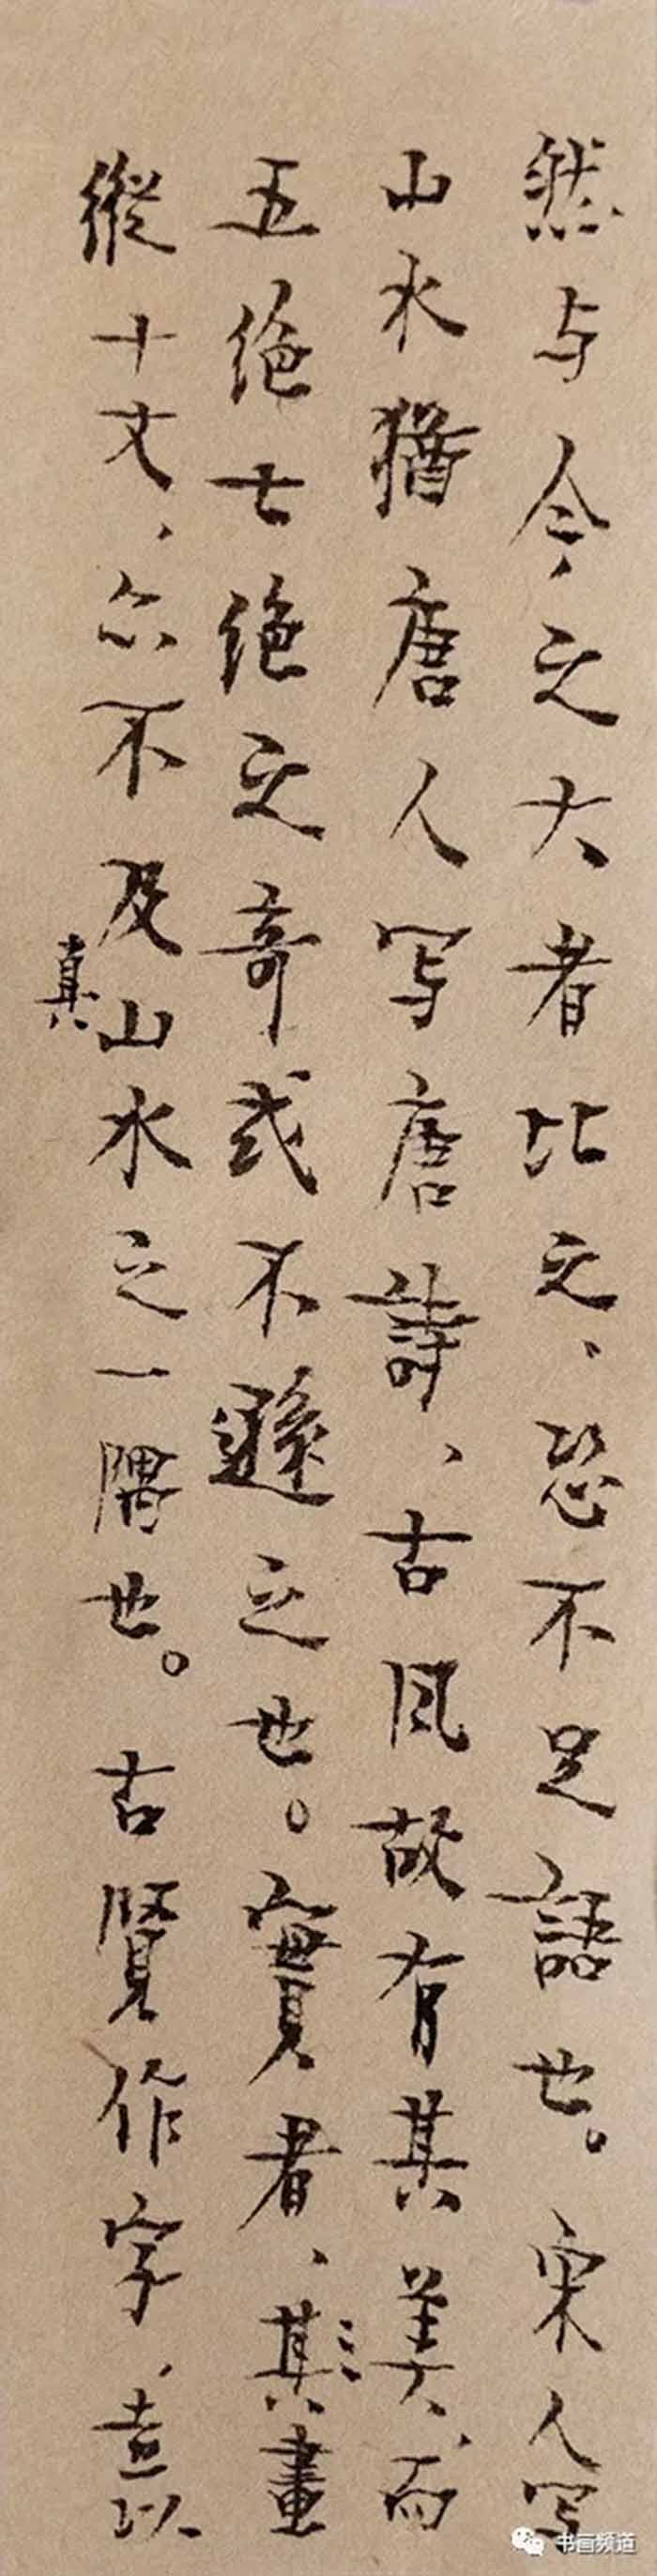 然与今之大者比之、恐不足語也。宋人写
山水猶唐人写唐詩、古风故有其美、而
五绝七绝之奇或不遜之也。實者、其畫
縱十丈、亦不及真山水之一隅也。古賢作字、意以
书画频道